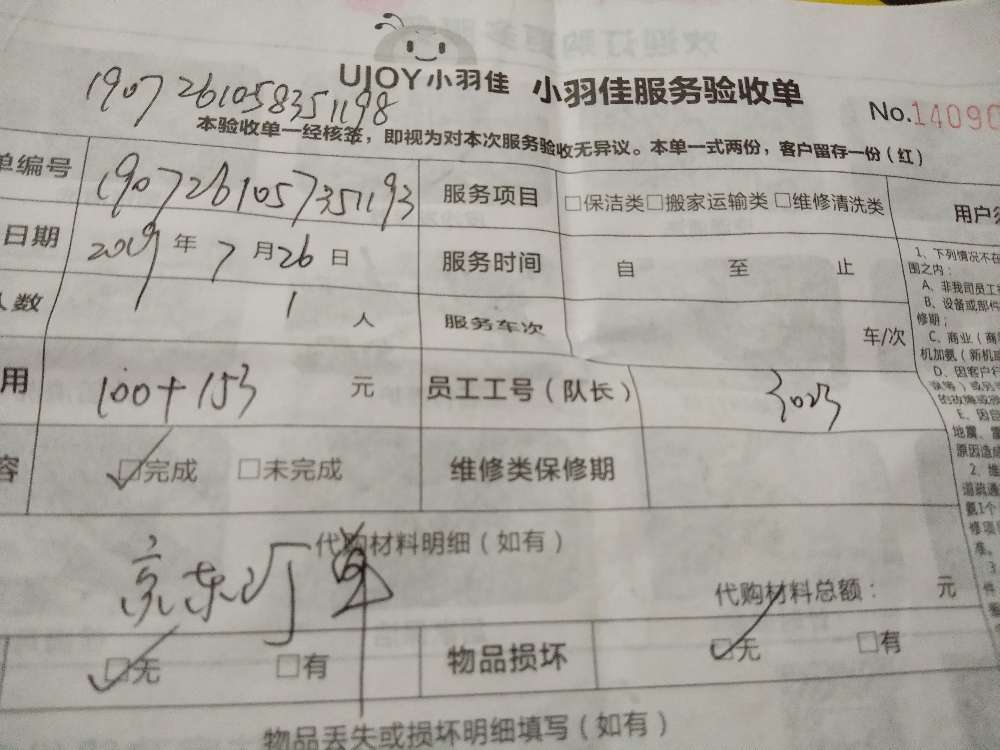 UJOY小羽佳 小羽佳服务验收单
1907261058351198
No.14090
本验收单一经核签，即视为对本次服务验收无异议。本单一式两份，客户留存一份（红）
单编号 1907261057351193 服务项目 □保洁类□搬家运输类□维修清洗类
日期 2019年7月26日 服务时间 自 至 止
人数 1人 服务车次 车/次
用 100+153 元 员工工号（队长） 3023
容 ☑完成 □未完成 维修类保修期
代购材料明细（如有）
京东订单
代购材料总额： 元
☑无 □有 物品损坏 ☑无 □有
物品丢失或损坏明细填写（如有）
用户
1、下列情况不在
围之内：
A、非我司员工
B、设备或部件
修期；
C、商业（商
机加氨（新机
D、因客户
E、因自
地震、雷
原因造成
2、维
道疏通
氨1个
修项
准。
3
件